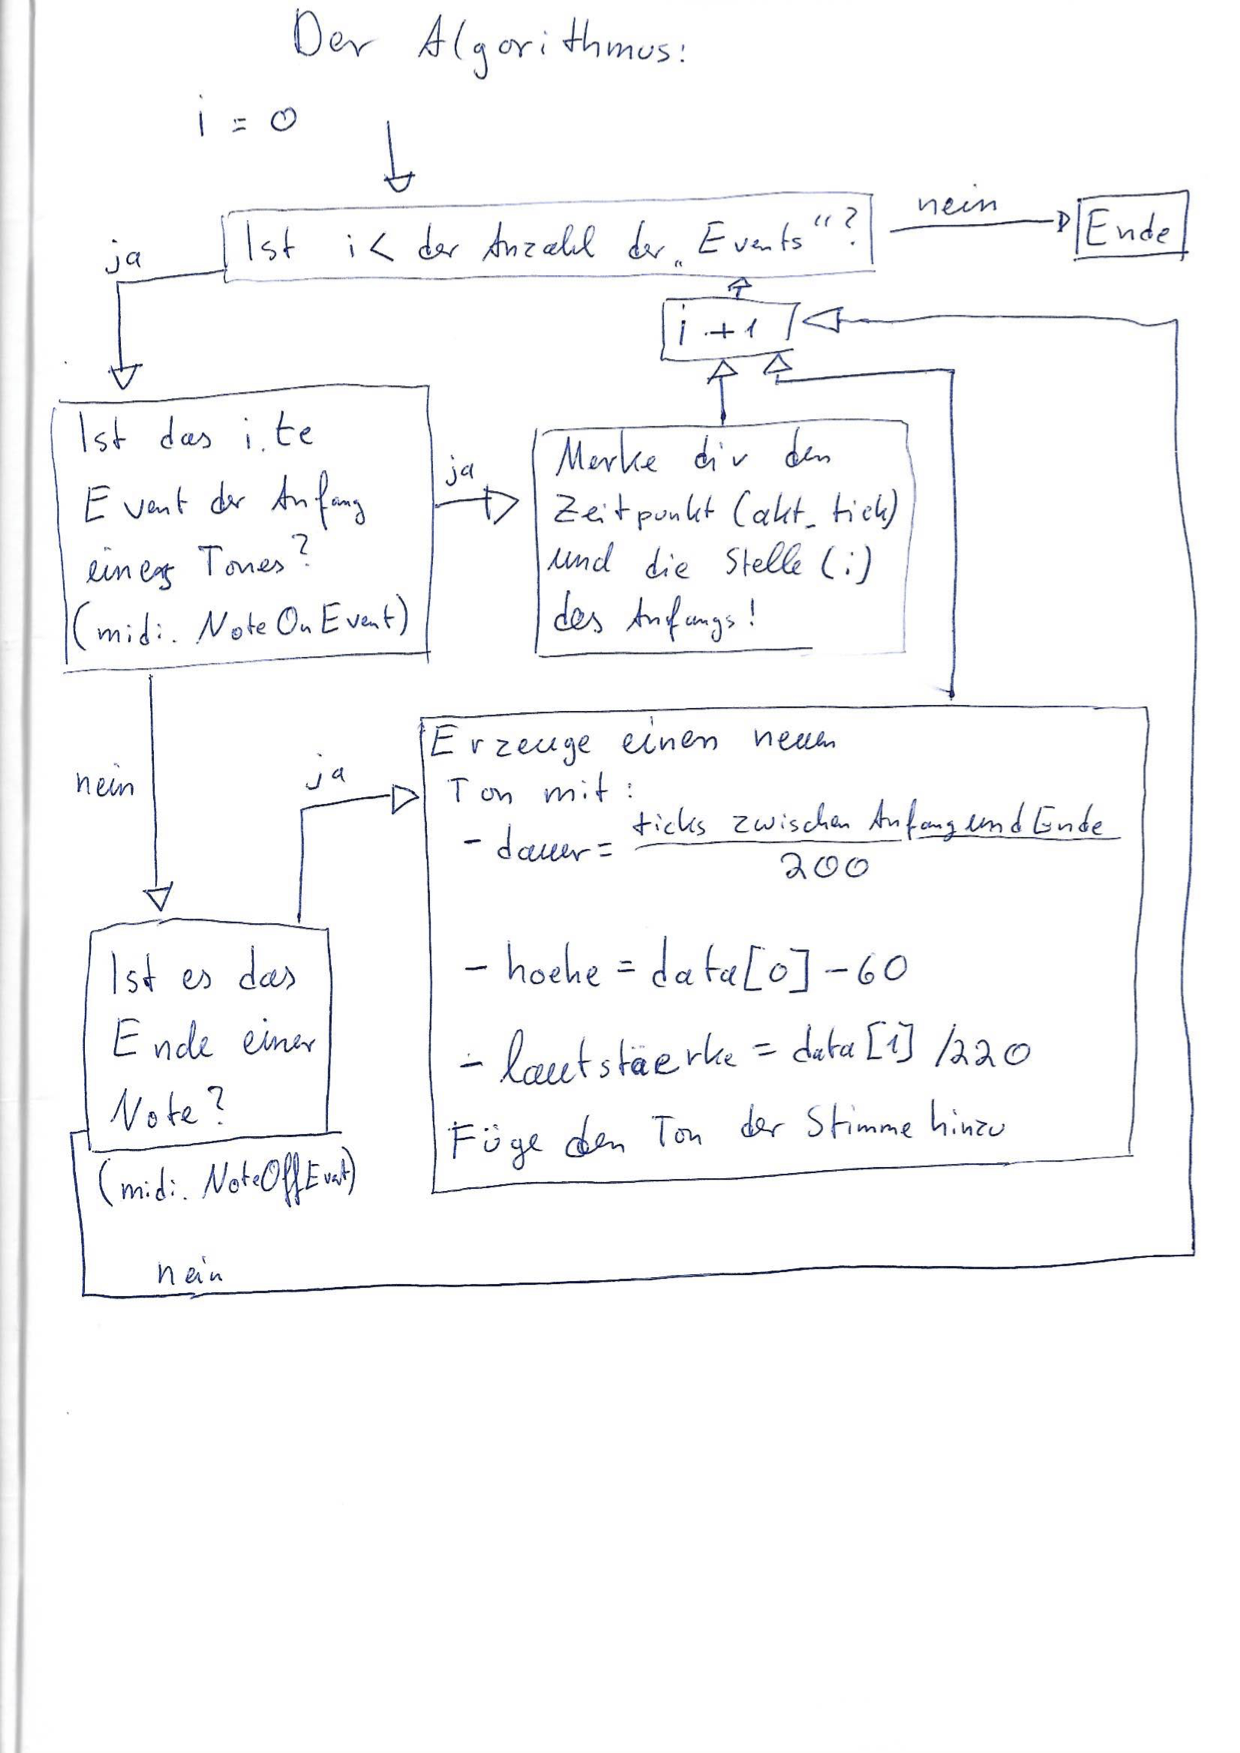 Der Algorithmus:
i = 0
Ist i < der Anzahl der „Events“?
nein
Ende
ja
i + 1
Ist das i.te
Event der Anfang
eines Tones?
(midi.NoteOnEvent)
ja
Merke dir den
Zeitpunkt (akt_tick)
und die Stelle (i)
des Anfangs!
nein
ja
Erzeuge einen neuen
Ton mit:
- dauer = ticks zwischen Anfang und Ende
200
- hoehe = data[0] - 60
- lautstäerke = data[1] /220
Füge den Ton der Stimme hinzu
Ist es das
Ende einer
Note?
(midi.NoteOffEvent)
nein